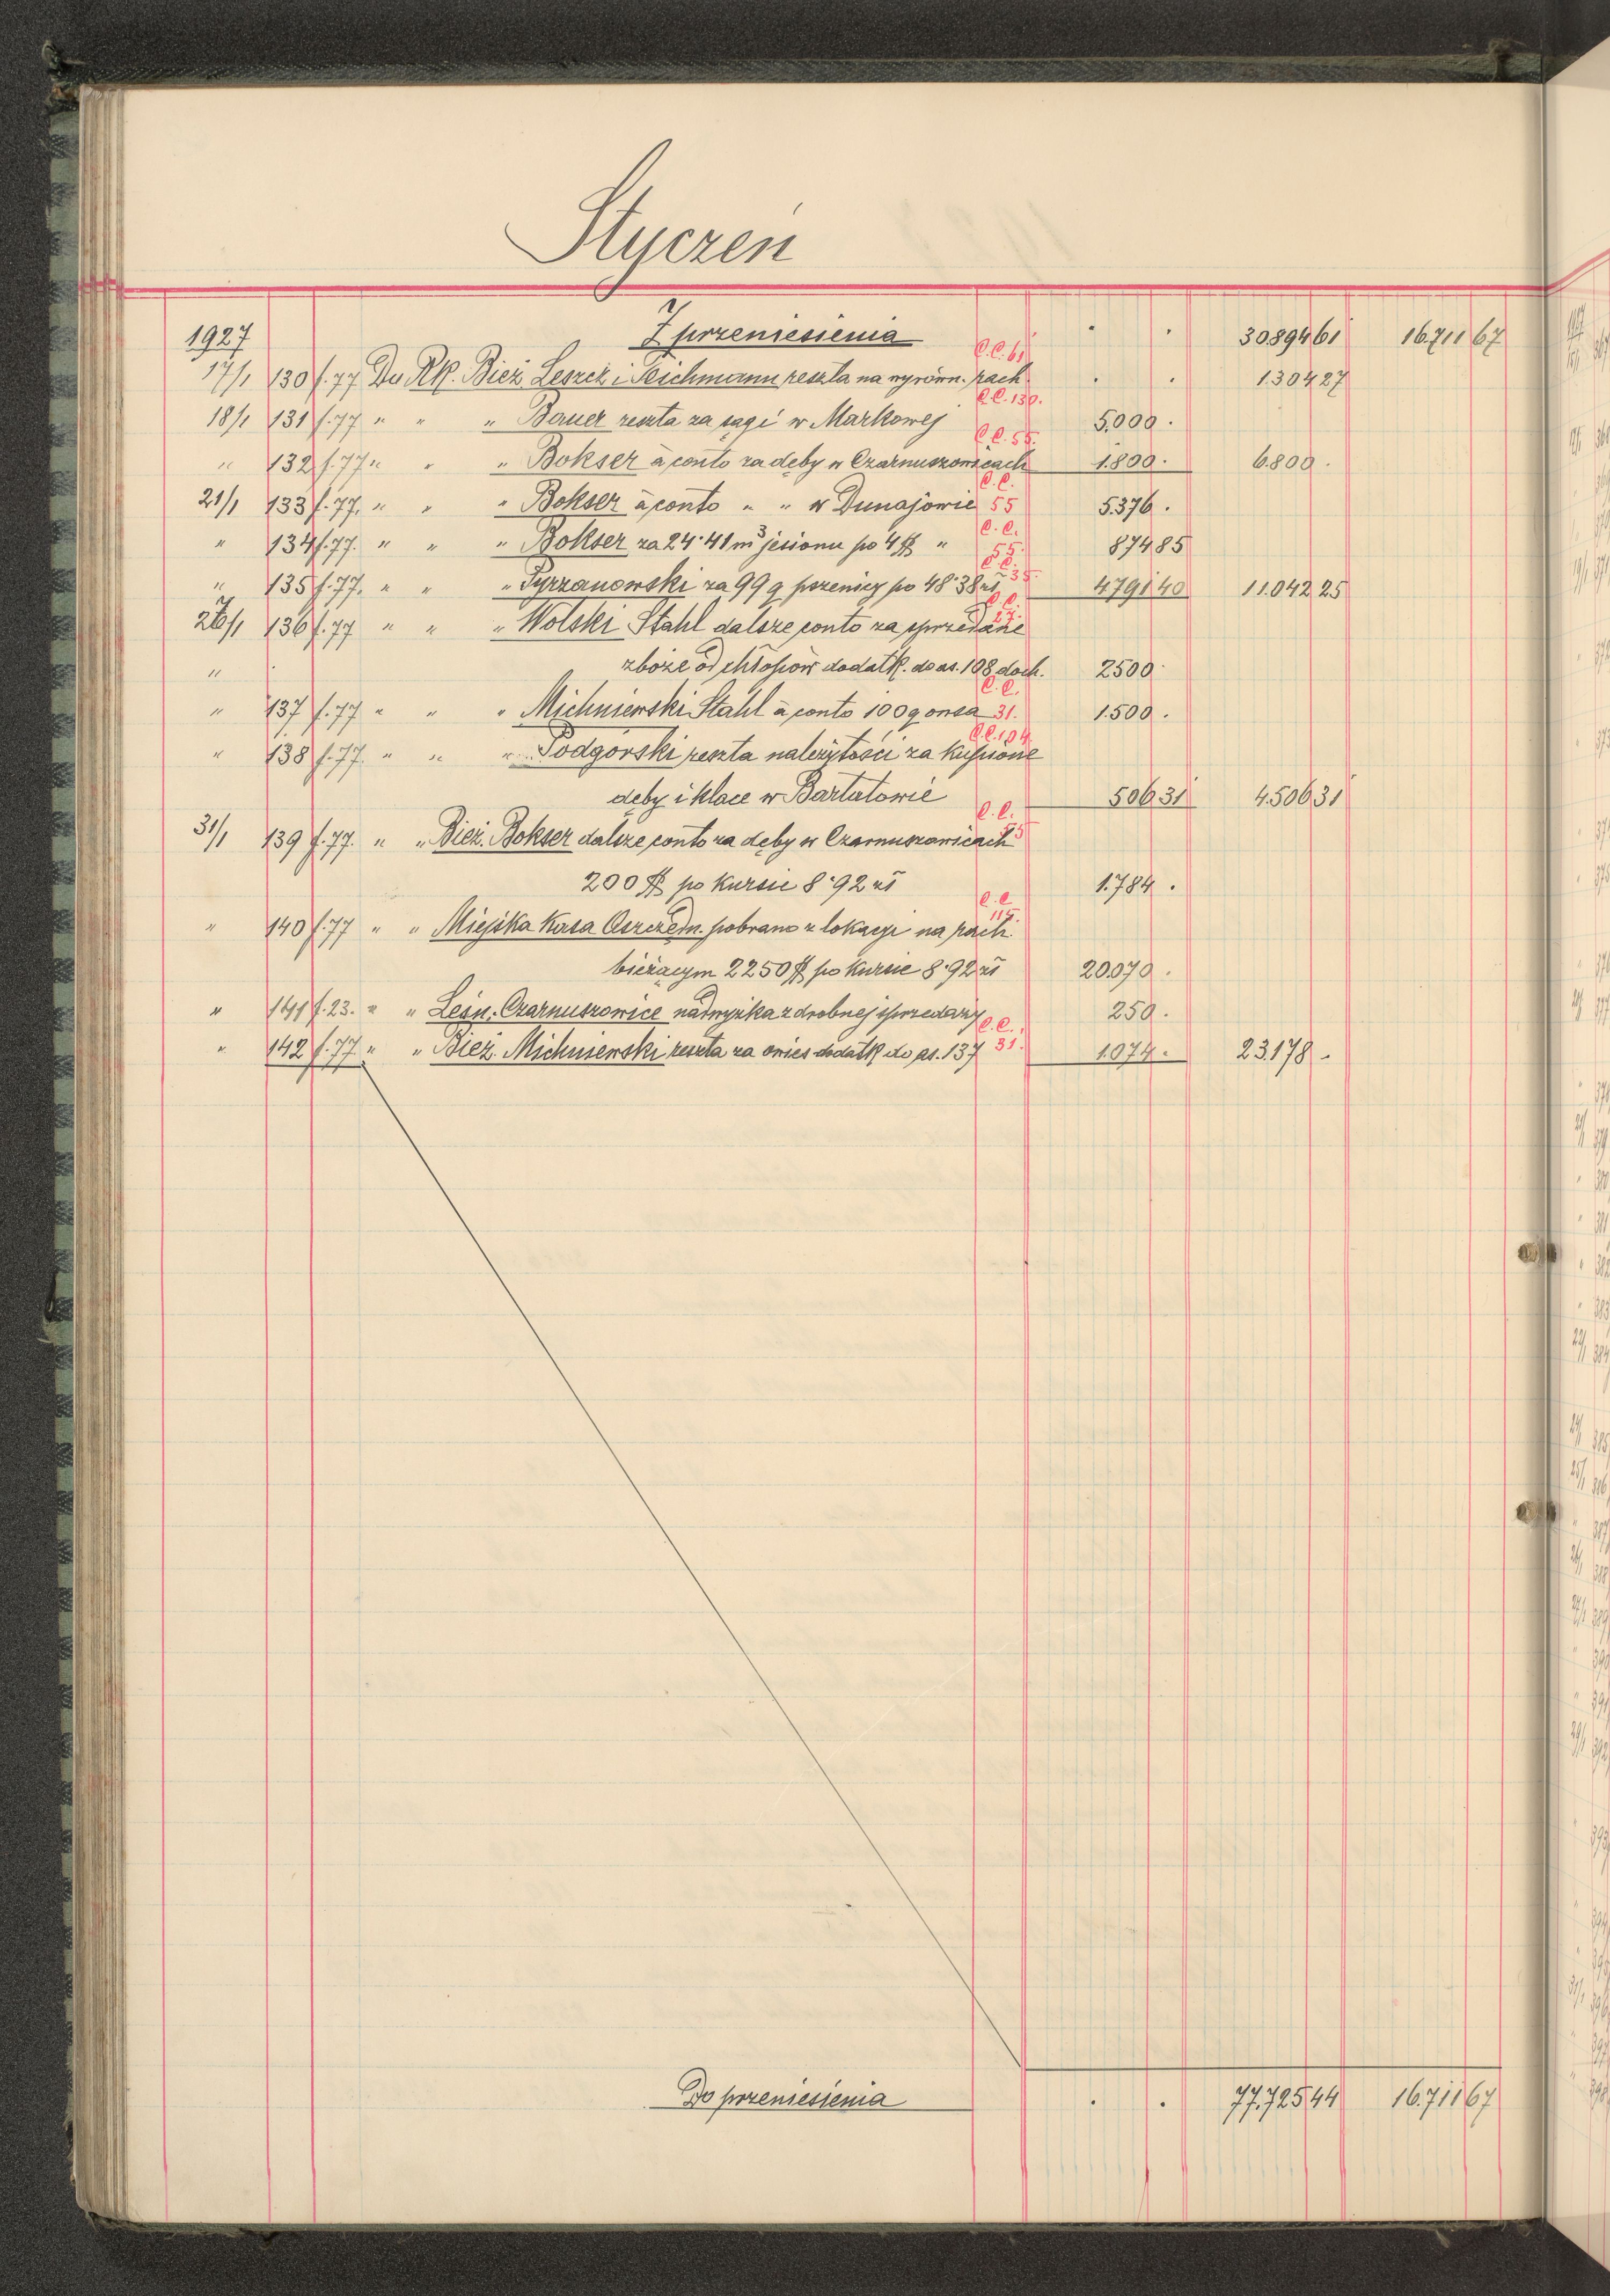 Styczeń
1927 Z przeniesienia . . 30.894 61 16.711 67
17/1 130 f. 77 Do Rk. Bież. Leszcz i Teichmann reszta na wyrówn. rach. C.C. 61 . . 1.304 27
18/1 131 f. 77 " " " Bauer reszta za sagi w Markowej C.C. 130. 5.000 .
" 132 f. 77 " " " Bokser à conto za dęby w Czarnuszowicach C.C. 55. 1.800 . 6.800 .
21/1 133 f. 77. " " " Bokser à conto " " w Dunajowie C.C. 55 5.376 .
" 134 f. 77. " " " Bokser za 24·41 m³ jesionu po 4 $ " C.C. 55. 874 85
" 135 f. 77. " " " Tyrzanowski za 99 q pszenicy po 48·38 zł C.C. 35. 4791 40 11.042 25
26/1 136 f. 77 " " " Wolski Stahl dalsze conto za sprzedane C.C. 27.
" zboże od chłopów dodatk. do as. 108 doch. 2500 .
" 137 f. 77 " " " Michniewski Stahl à conto 100 q owsa C.C. 31. 1.500 .
" 138 f. 77. " " " Podgórski reszta należytości za kupione C.C. 104.
dęby i klace w Bartatowie 506 31 4.506 31
31/1 139 f. 77. " " Bież. Bokser dalsze conto za dęby w Czarnuszowicach C.C. 55
200 $ po kursie 8·92 zł 1.784 .
" 140 f. 77 " " Miejska Kasa Oszczędn. pobrano z lokacyi na rach. C.C. 115.
bieżącym 2250 $ po kursie 8·92 zł 20.070 .
" 141 f. 23. " " Leśn. Czarnuszowice nadwyżka z drobnej sprzedaży 250 .
" 142 f. 77 " " Bież. Michniewski reszta za owies dodatk. do as. 137 C.C. 31. 1.074 . 23.178 .
Do przeniesienia . . 77.725 44 16.711 67